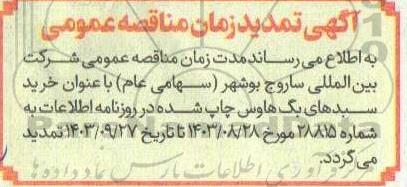 آگهی تمدید زمان مناقصه عمومی
به اطلاع می رساند مدت زمان مناقصه عمومی شرکت
بین المللی ساروج بوشهر (سهامی عام) با عنوان خرید
سبدهای بگ هاوس چاپ شده در روزنامه اطلاعات به
شماره ۲۸۸۱۵ مورخ ۱۴۰۳/۰۸/۲۸ تا تاریخ ۱۴۰۳/۰۹/۲۷ تمدید
می گردد.